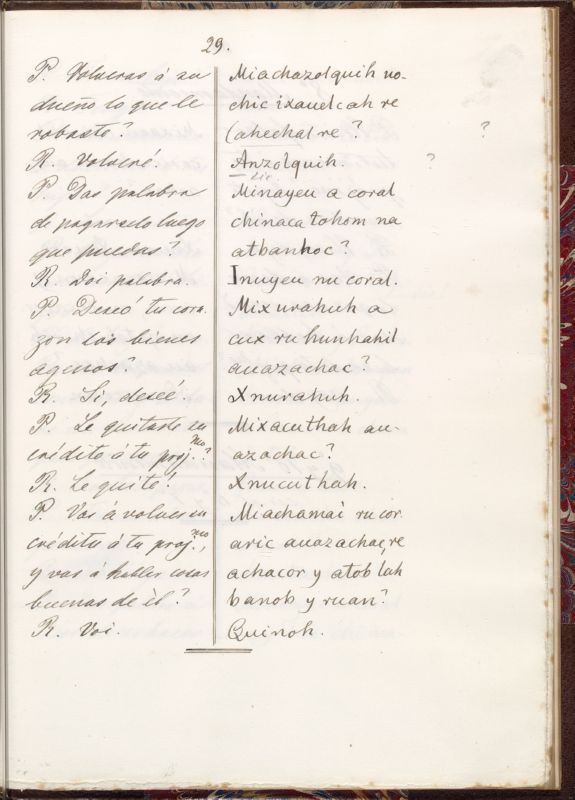 29.
P. Volveras á su
dueño lo que le
robaste?
R. Volveré.
P. Das palabra
de pagarselo luego
que puedas?
R. Doi palabra.
P. Deseó tu cora-
zon los bienes
agenos?
R. Si, deseé.
P. Le quitaste su
crédito á tu proj.mo?
R. Le quité!
P. Vas á volver su
crédito á tu proj.mo,
y vas á hablar cosas
buenas de él?
R. Voi.
Miachazolquih uo-
chic ixauelcah re
Cahechal re? ?
Anzolquih. ?
sic
Minayeu a coral
chinaca tohom na
atbanhoc?
Inuyeu nu coral.
Mixurahuh a
cux ru hunhahil
auazachac?
Xnurahuh.
Mixacuthah au-
azachac?
Xnucuthah.
Miachamai ru cor
aric auazachac, re
achacor y atob lah
banob y ruan?
Quinoh.